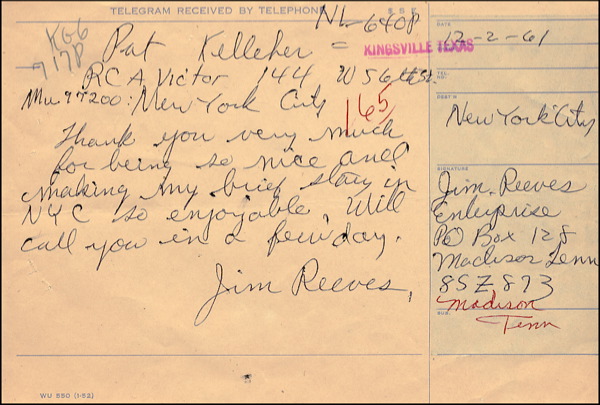 TELEGRAM RECEIVED BY TELEPHONE
NL-640P
KG6
717P
KINGSVILLE TEXAS
Pat Kelleher =
RCA Victor 144 W 56th St.
Mu 97200: New York City
165
Thank you very much
for being so nice and
making my brief stay in
NYC so enjoyable, Will
call you in a few day.
Jim Reeves,
WU 550 (1-52)
DATE
12-2-61
TEL.
NO.
DEST'N
New York City
SIGNATURE
Jim. Reeves
Enterprise
PO Box 128
Madison Tenn
85Z873
Madison
Tenn